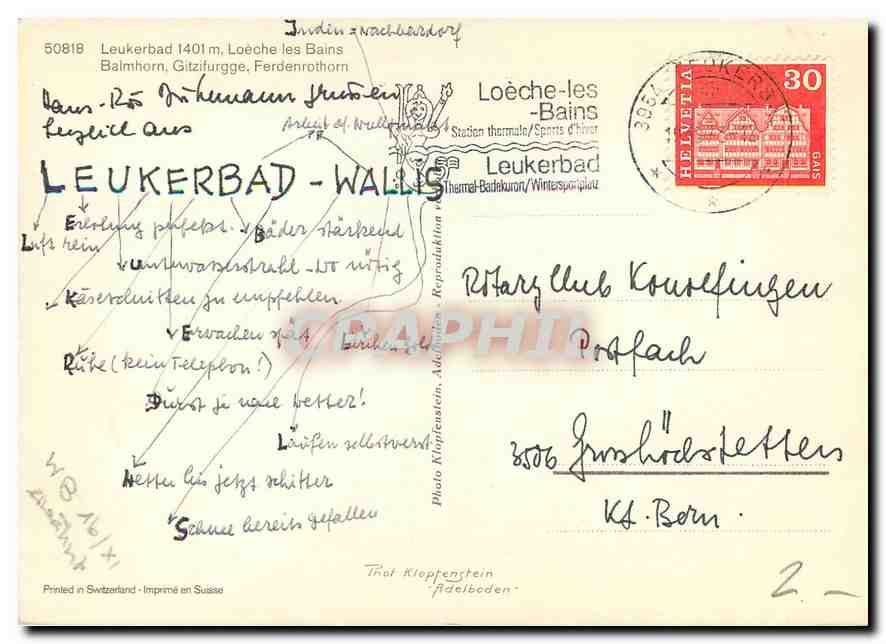 Inden = Nachbardorf
50818 Leukerbad 1401 m, Loèche les Bains
Balmhorn, Gitzifurgge, Ferdenrothorn
Hans-
herzlich aus
LEUKERBAD - WALLIS
Erholung perfekt. Bäder stärkend
Luft rein
Unterwasserstrahl - wo nötig
Käseschnitten zu empfehlen
Erwachen spät Lärchen Gold
Ruhe (kein Telephon!)
Durst je nach Wetter!
Laufen selbstverst
Wetter bis jetzt schitter
Schnee bereits gefallen
16/XI
Printed in Switzerland - Imprimé en Suisse
Phot Klopfenstein
- Adelboden -
Photo Klopfenstein, Adelboden - Reproduktion
CPAPHIL
Loèche-les
-Bains
Station thermale/Sports d'hiver
Leukerbad
Thermal-Badekurort/Wintersportplatz
3954 LEUKERBAD
HELVETIA
30
GAIS
Rotary Club Konolfingen
Postfach
3506 Grosshöchstetten
Kt. Bern.
2.-